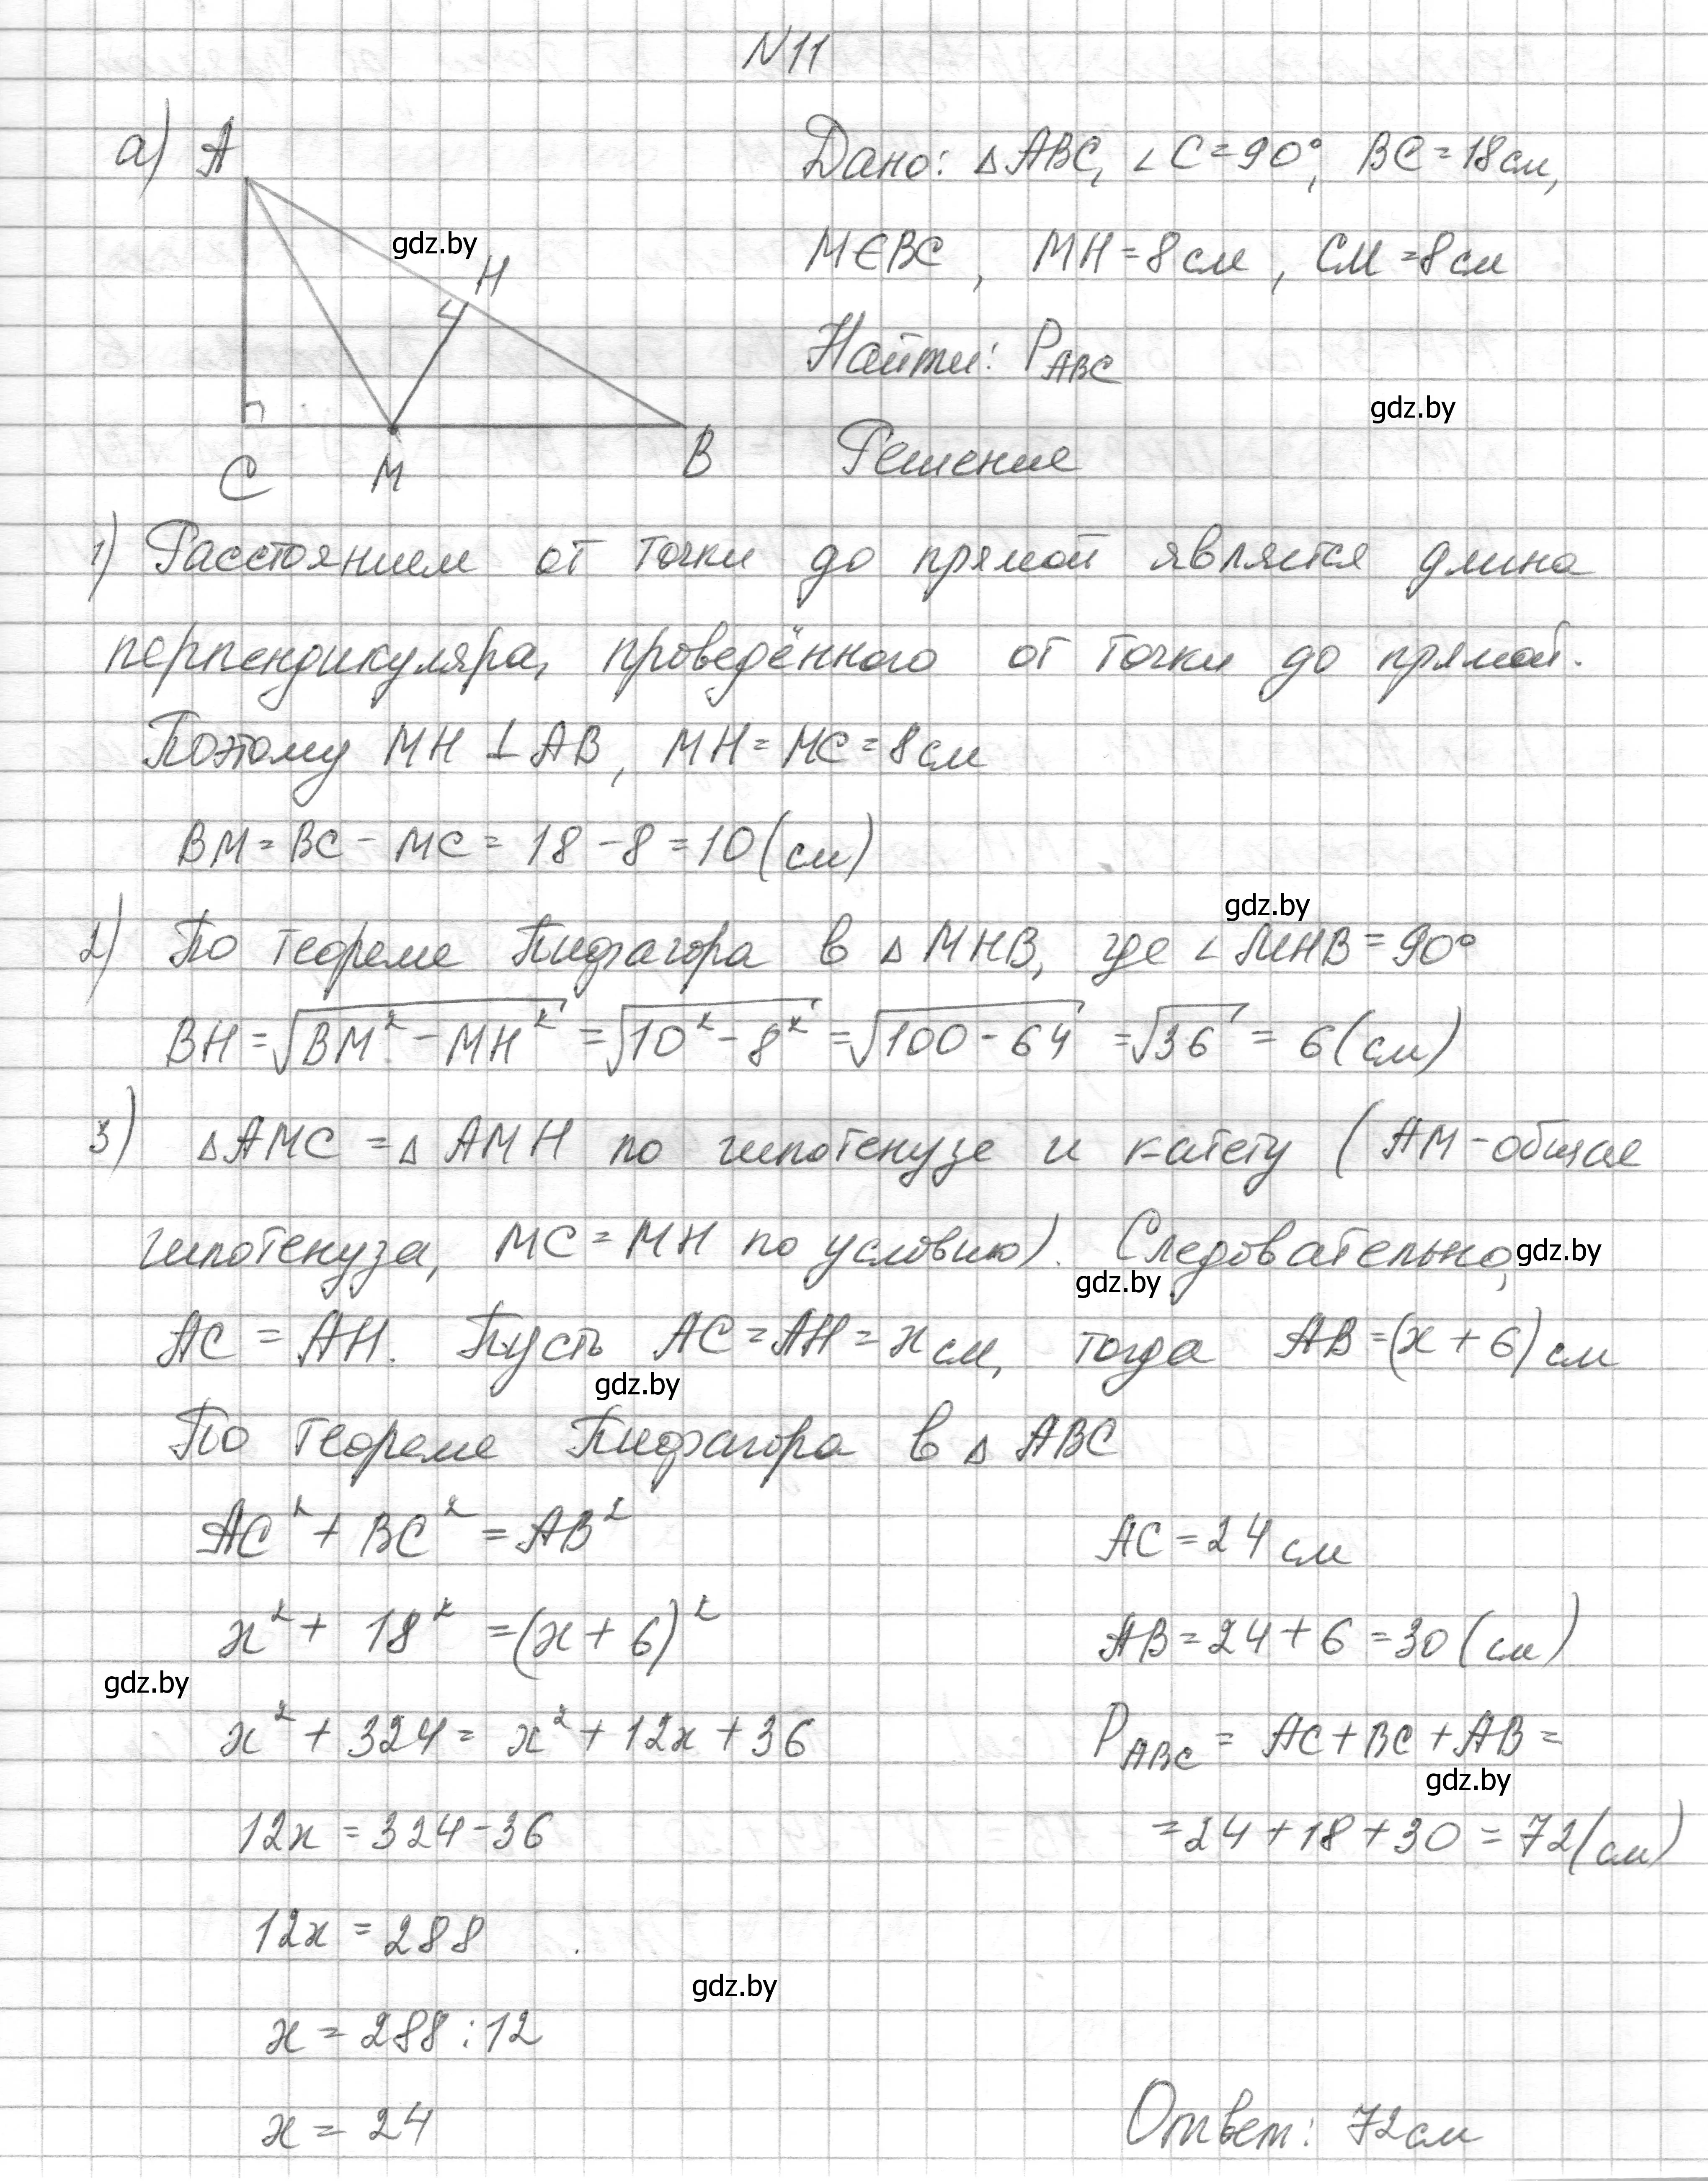 N11
а) A
Дано: △ABC, ∠C=90°, BC=18см,
gdz.by
H
M∈BC, MH=8см, CM=8см
Найти: P_ABC
gdz.by
C M B
Решение
1) Расстоянием от точки до прямой является длина
перпендикуляра, проведённого от точки до прямой.
Поэтому MH⊥AB, MH=MC=8см
BM=BC-MC=18-8=10(см)
gdz.by
2) По теореме Пифагора в △MHB, где ∠MHB=90°
BH=√(BM²-MH²)=√(10²-8²)=√(100-64)=√36=6(см)
3) △AMC=△AMH по гипотенузе и катету (AM-общая
гипотенуза, MC=MH по условию). Следовательно,
gdz.by
gdz.by
AC=AH. Пусть AC=AH=x см, тогда AB=(x+6)см
gdz.by
По теореме Пифагора в △ABC
AC²+BC²=AB²
x²+18²=(x+6)²
gdz.by
x²+324=x²+12x+36
12x=324-36
12x=288
gdz.by
x=288:12
x=24
AC=24см
AB=24+6=30(см)
P_ABC=AC+BC+AB=
gdz.by
=24+18+30=72(см)
Ответ: 72см